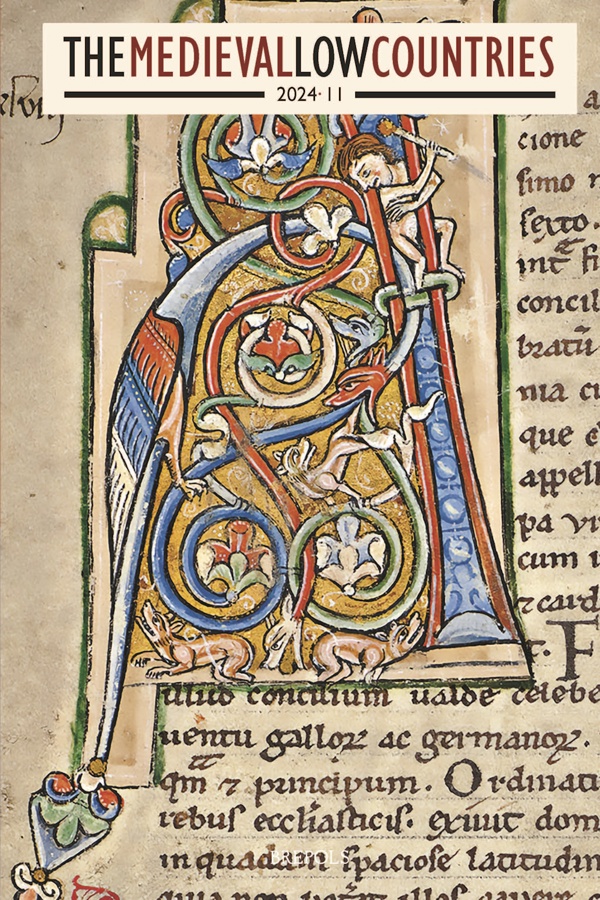 THEMEDIEVALLOWCOUNTRIES
2024·11
cione
simo
sexto.
int
concil
bratū
nia
que
appell
pa
cum
illud concilium ualde celebe
uentu galloꝝ ac germanoꝝ.
qm̄ ⁊ principum. Ordinati
rebus eccl̄iasticis: exiuit dom
in quadam spaciose latitudin
BREPOLS